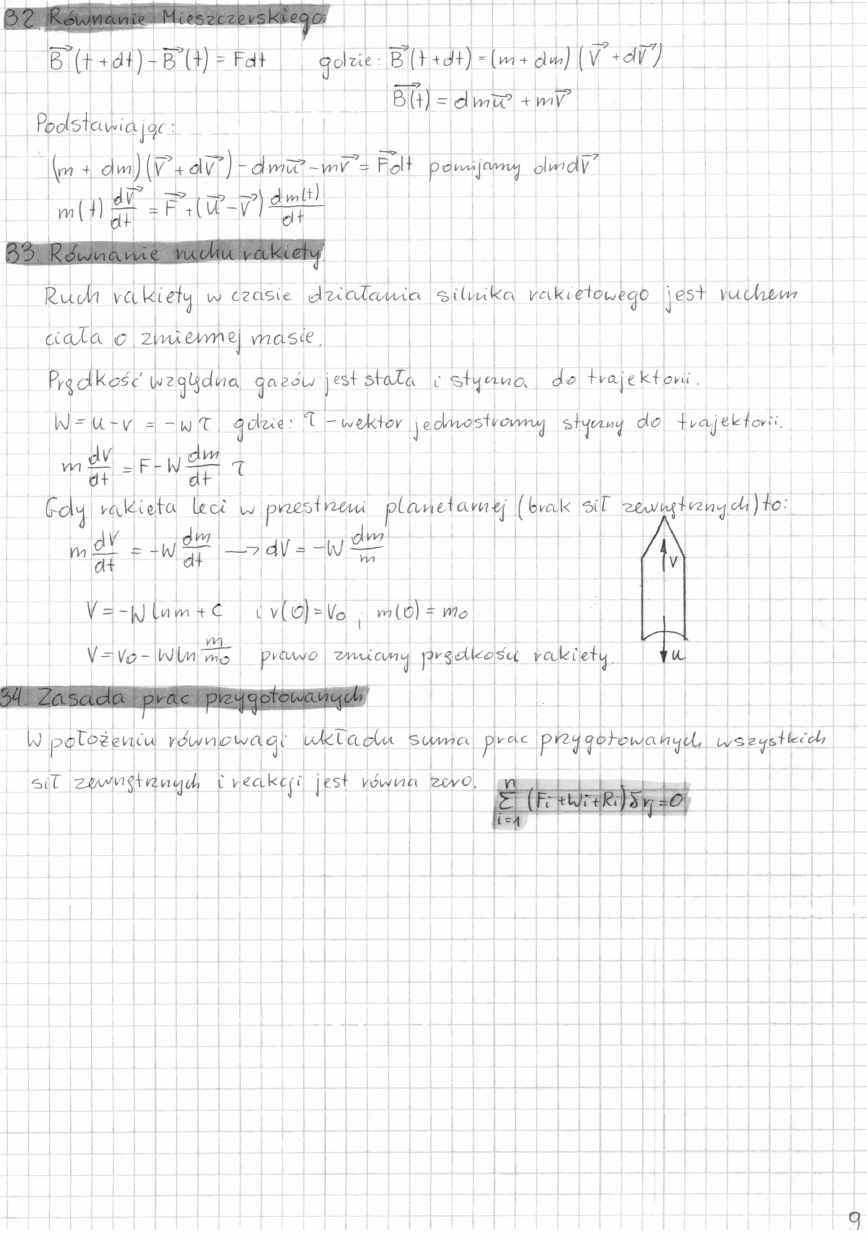 32. Równanie Mieszczerskiego
B⃗(t+dt) - B⃗(t) = Fdt gdzie: B⃗(t+dt) = (m+dm)(V⃗+dV⃗)
B⃗(t) = dmu⃗ + mV⃗
Podstawiając:
(m+dm)(V⃗+dV⃗) - dmu⃗ - mV⃗ = F⃗dt pomijamy dmdV⃗
m(t) dV⃗/dt = F⃗ + (u⃗-V⃗) dm(t)/dt
33 Równanie ruchu rakiety
Ruch rakiety w czasie działania silnika rakietowego jest ruchem
ciała o zmiennej masie.
Prędkość względna gazów jest stała i styczna do trajektorii.
W = u - v = -wτ gdzie: τ - wektor jednostronny styczny do trajektorii.
m dV/dt = F - W dm/dt τ
Gdy rakieta leci w przestrzeni planetarnej (brak sił zewnętrznych) to:
m dV/dt = -W dm/dt → dV = -W dm/m
V
V = -W ln m + C i v(0) = V0 ; m(0) = m0
V = V0 - W ln m/m0 prawo zmiany prędkości rakiety.
u
34. Zasada prac przygotowanych
W położeniu równowagi układu suma prac przygotowanych wszystkich
sił zewnętrznych i reakcji jest równa zero. Σ_{i=1}^{n} (Fi + Wi + Ri) δrj = 0
9